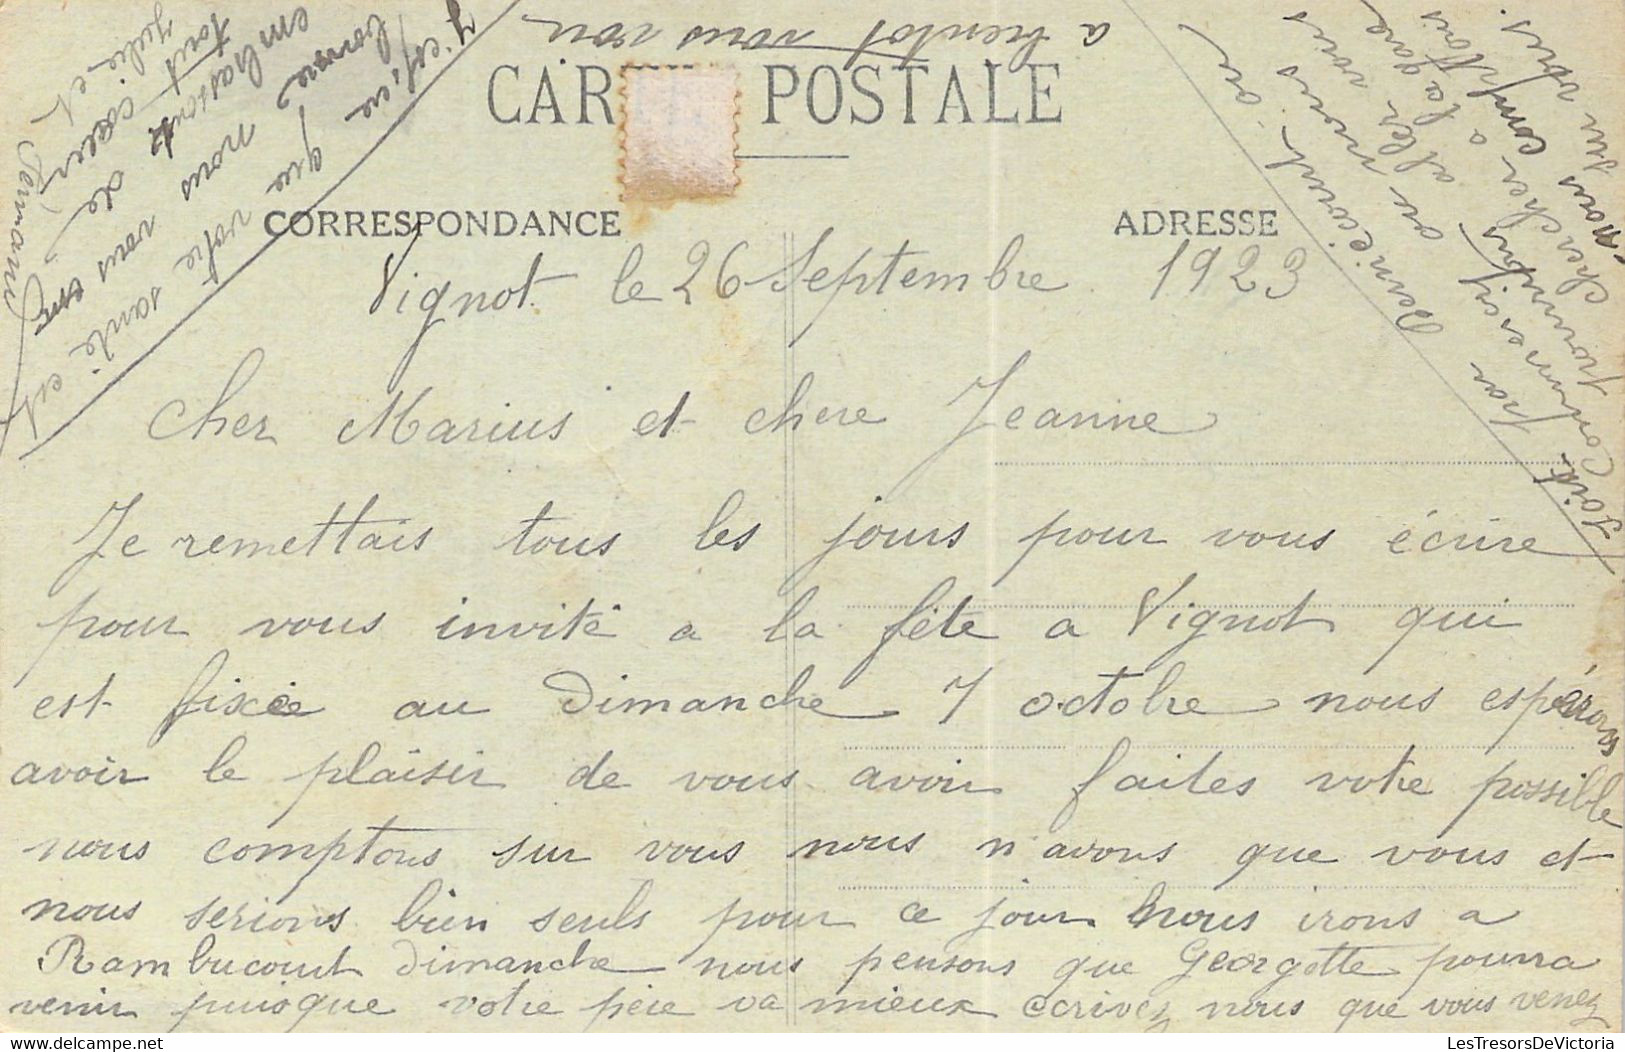 CARTE POSTALE
CORRESPONDANCE
ADRESSE
Vignot le 26 Septembre 1923
Cher Marius et chere Jeanne
Je remettais tous les jours pour vous écrire
pour vous invité a la fête a Vignot qui
est fixée au Dimanche 7 octobre nous espérons
avoir le plaisir de vous avoir faites votre possible
nous comptons sur vous nous n'avons que vous et
nous serions bien seuls pour ce jour nous irons a
Rambucourt dimanche nous pensons que Georgette pourra
venir puisque votre père va mieux ecrivez nous que vous venez
soit par
Commercy ou
nous
aller vous
chercher a la gare
nous comptons
sur vous.
a bientot vous voir
j'espère que votre santé et
bonne nous vous
embrassons de
tout cœur
Julie et Fernand
LesTresorsDeVictoria